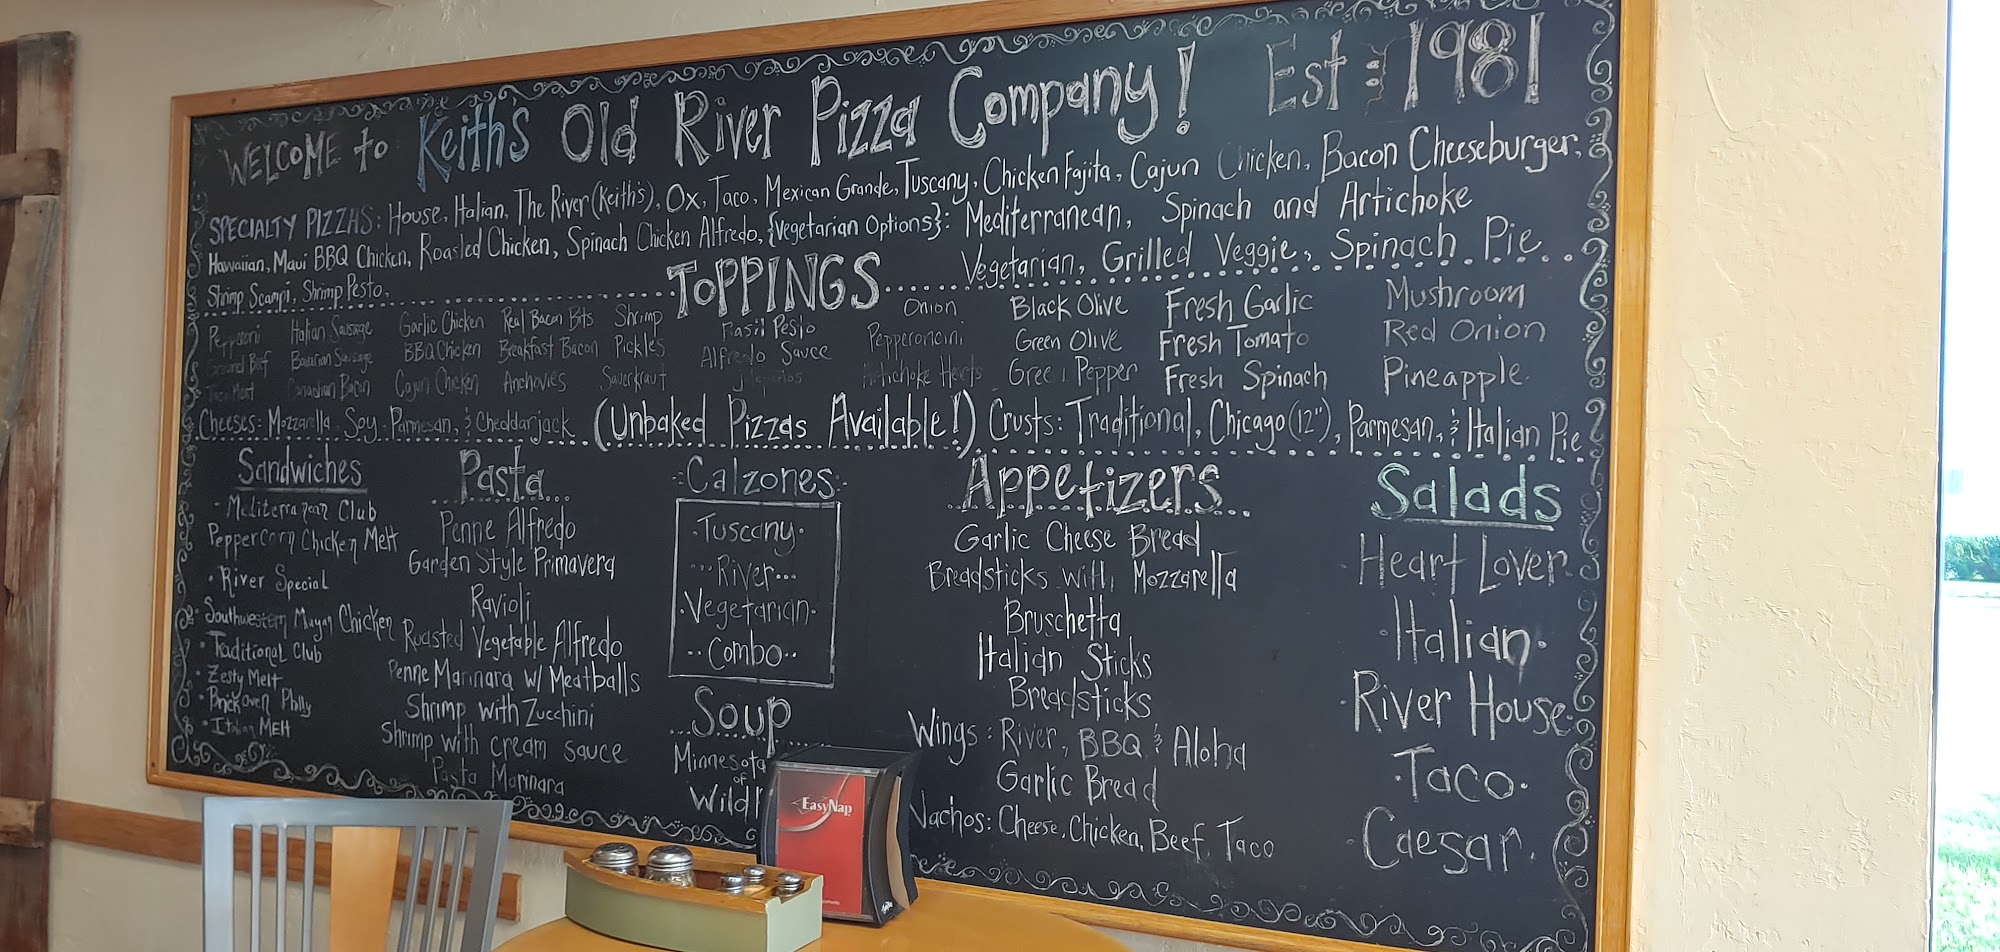 WELCOME to Keith's Old River Pizza Company! Est: 1981
SPECIALTY PIZZAS: House, Italian, The River (Keith's), Ox, Taco, Mexican Grande, Tuscany, Chicken Fajita, Cajun Chicken, Bacon Cheeseburger,
Hawaiian, Maui BBQ Chicken, Roasted Chicken, Spinach Chicken Alfredo, {Vegetarian Options}: Mediterranean, Spinach and Artichoke
Shrimp Scampi, Shrimp Pesto,
Vegetarian, Grilled Veggie, Spinach Pie
TOPPINGS
Pepperoni
Ground Beef
Taco Meat
Italian Sausage
Bavarian Sausage
Canadian Bacon
Garlic Chicken
BBQ Chicken
Cajun Chicken
Real Bacon Bits
Breakfast Bacon
Anchovies
Shrimp
Pickles
Sauerkraut
Basil Pesto
Alfredo Sauce
Onion
Pepperoncini
Artichoke Hearts
Black Olive
Green Olive
Green Pepper
Fresh Garlic
Fresh Tomato
Fresh Spinach
Mushroom
Red Onion
Pineapple
Cheeses: Mozzarella, Soy-Parmesan, & Cheddarjack (Unbaked Pizzas Available!) Crusts: Traditional, Chicago (12"), Parmesan, & Italian Pie
Sandwiches
- Mediterranean Club
Peppercorn Chicken Melt
• River Special
• Southwestern Mayan Chicken
• Traditional Club
• Zesty Melt
• Brick oven Philly
• Italian Melt
Pasta
Penne Alfredo
Garden Style Primavera
Ravioli
Roasted Vegetable Alfredo
Penne Marinara w/ Meatballs
Shrimp with Zucchini
Shrimp with cream sauce
Pasta Marinara
Calzones
Tuscany
River
Vegetarian
Combo
Soup
Minnesota
Wild
Appetizers
Garlic Cheese Bread
Breadsticks with Mozzarella
Bruschetta
Italian Sticks
Breadsticks
Wings: River, BBQ & Aloha
Garlic Bread
Nachos: Cheese, Chicken, Beef, Taco
Salads
Heart Lover
Italian
River House
Taco
Caesar
EasyNap